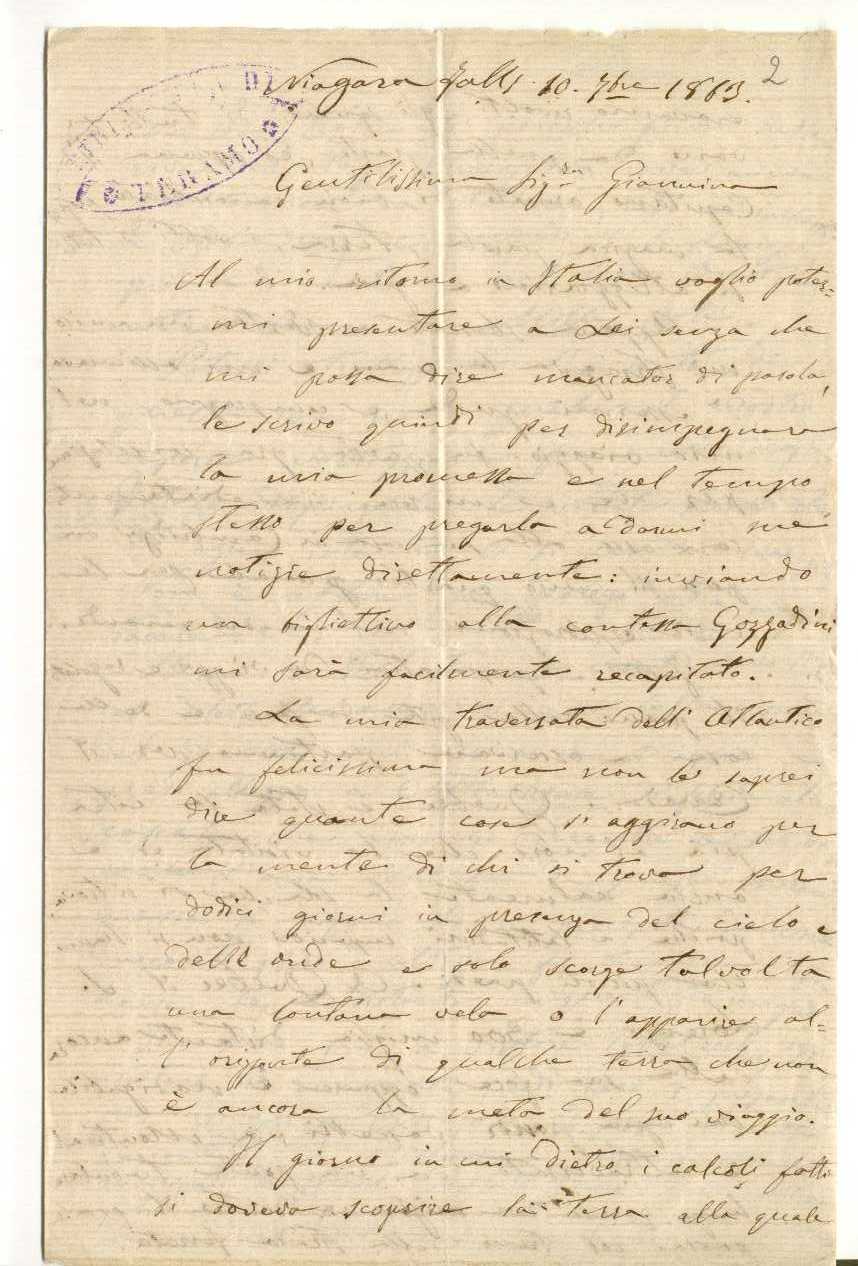 Niagara Falls 10. 7bre 1863. 2
DI
TERAMO
Gentilissima Sigra Giannina
Al mio ritorno in Italia voglio poter=
mi presentare a Lei senza che
mi possa dire mancator di parola,
le scrivo quindi per disimpegnare
la mia promessa e nel tempo
stesso per pregarla a darmi sue
notizie direttamente: inviando
un bigliettino alla contessa Gozzadini
mi sarà facilmente recapitato.
La mia traversata dell' Atlantico
fu felicissima ma non le saprei
dire quante cose s' aggirano per
la mente di chi si trova per
dodici giorni in presenza del cielo e
delle onde e solo scorge talvolta
una lontana vela o l' apparire al=
l' orizzonte di qualche terra che non
è ancora la meta del suo viaggio.
Il giorno in cui dietro i calcoli fatti
si doveva scoprire la terra alla quale